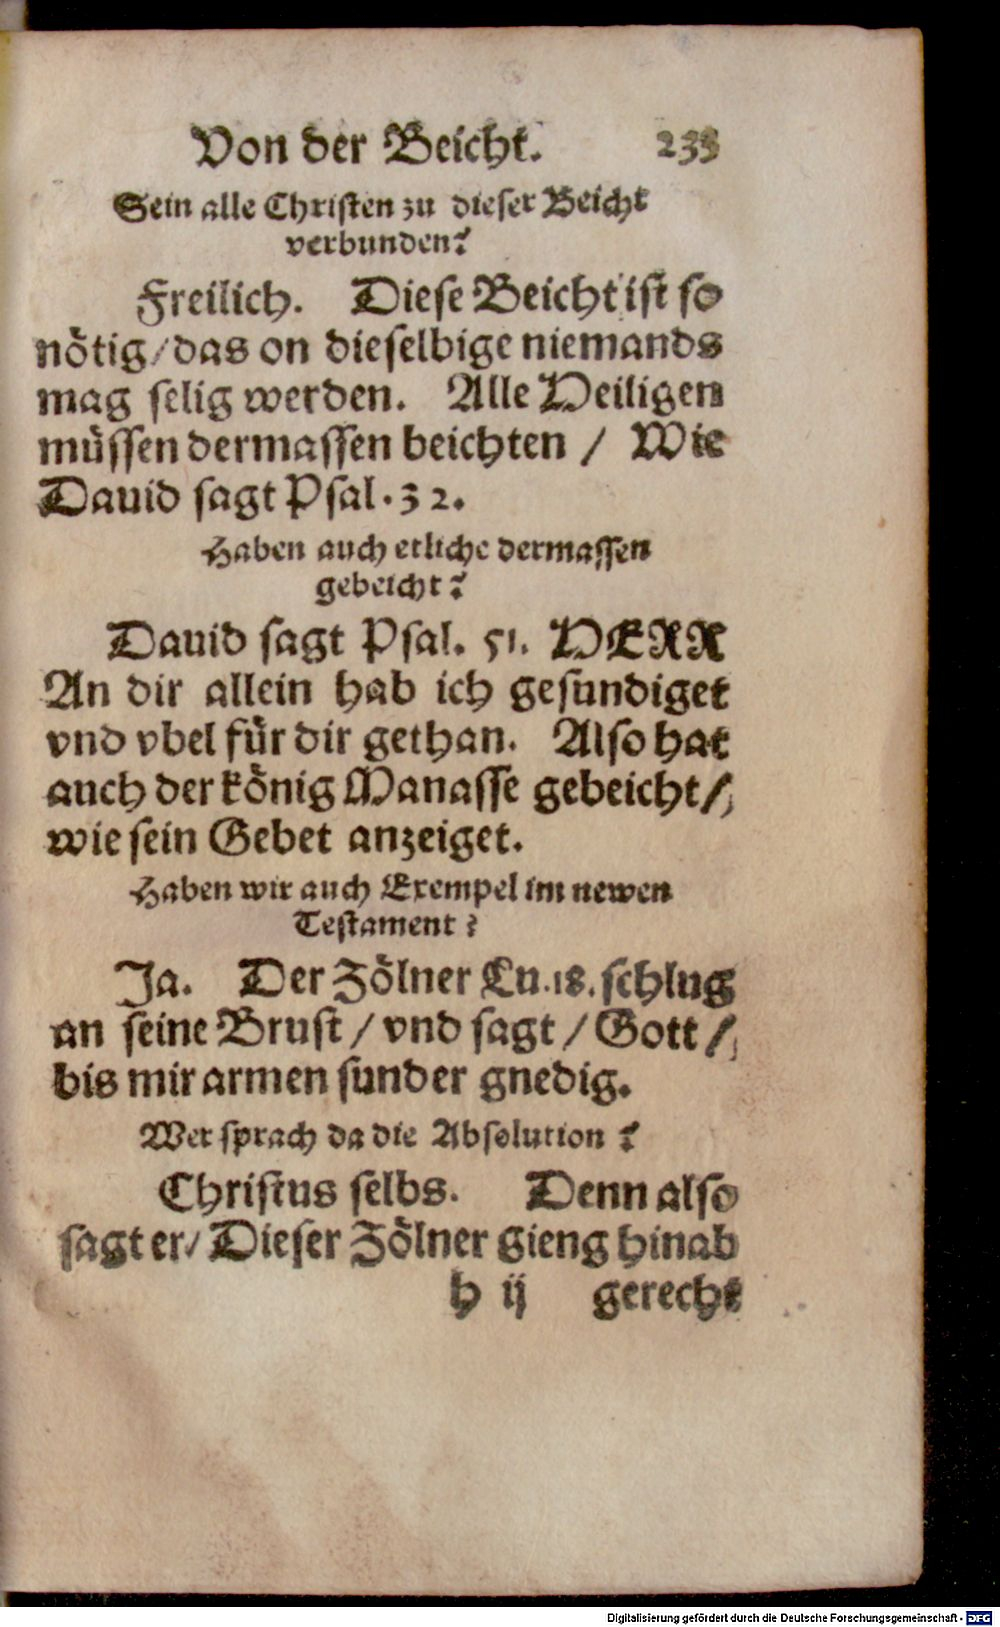 Von der Beicht. 233
Sein alle Christen zu dieser Beicht
verbunden?
Freilich. Diese Beicht ist so
nötig/das on dieselbige niemands
mag selig werden. Alle Heiligen
müssen dermassen beichten / Wie
Dauid sagt Psal. 32.
Haben auch etliche dermassen
gebeicht?
Dauid sagt Psal. 51. HERR
An dir allein hab ich gesundiget
vnd vbel für dir gethan. Also hat
auch der könig Manasse gebeicht/
wie sein Gebet anzeiget.
Haben wir auch Exempel im newen
Testament?
Ja. Der Zölner Lu. 18. schlug
an seine Brust / vnd sagt / Gott /
bis mir armen sunder gnedig.
Wer sprach da die Absolution?
Christus selbs. Denn also
sagt er/ Dieser Zölner gieng hinab
h ij gerecht
Digitalisierung gefördert durch die Deutsche Forschungsgemeinschaft - DFG